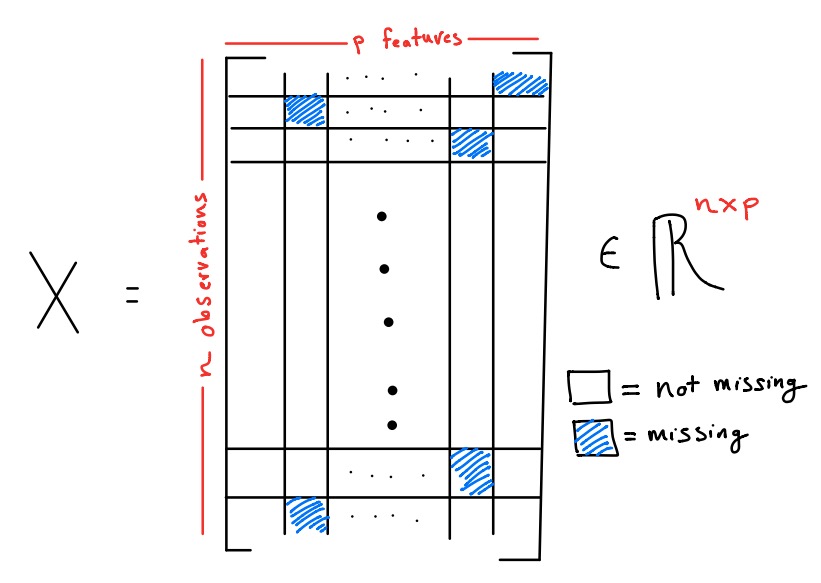 p features
n observations
X = ∈ ℝ^{n×p}
= not missing
= missing